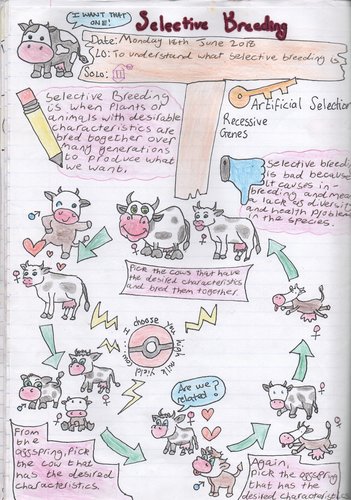 I WANT THAT ONE!
Selective Breeding
Date: Monday 18th June 2018
LO: To understand what selective breeding is
SOLO:
Selective Breeding
is when plants or
animals with desirable
characteristics are
bred together over
many generations
to produce what
we want.
Artificial Selection
Recessive
Genes
Selective breeding
is bad because
it causes in-
breeding and mean
a lack of diversity
and health problem
in the species.
Pick the cows that have
the desired characteristics
and bred them together.
I choose you high milk yield
Are we related?
From
the
offspring, pick
the cow that
has the desired
characteristics.
Again,
pick the offspring
that has the
desired characteristics